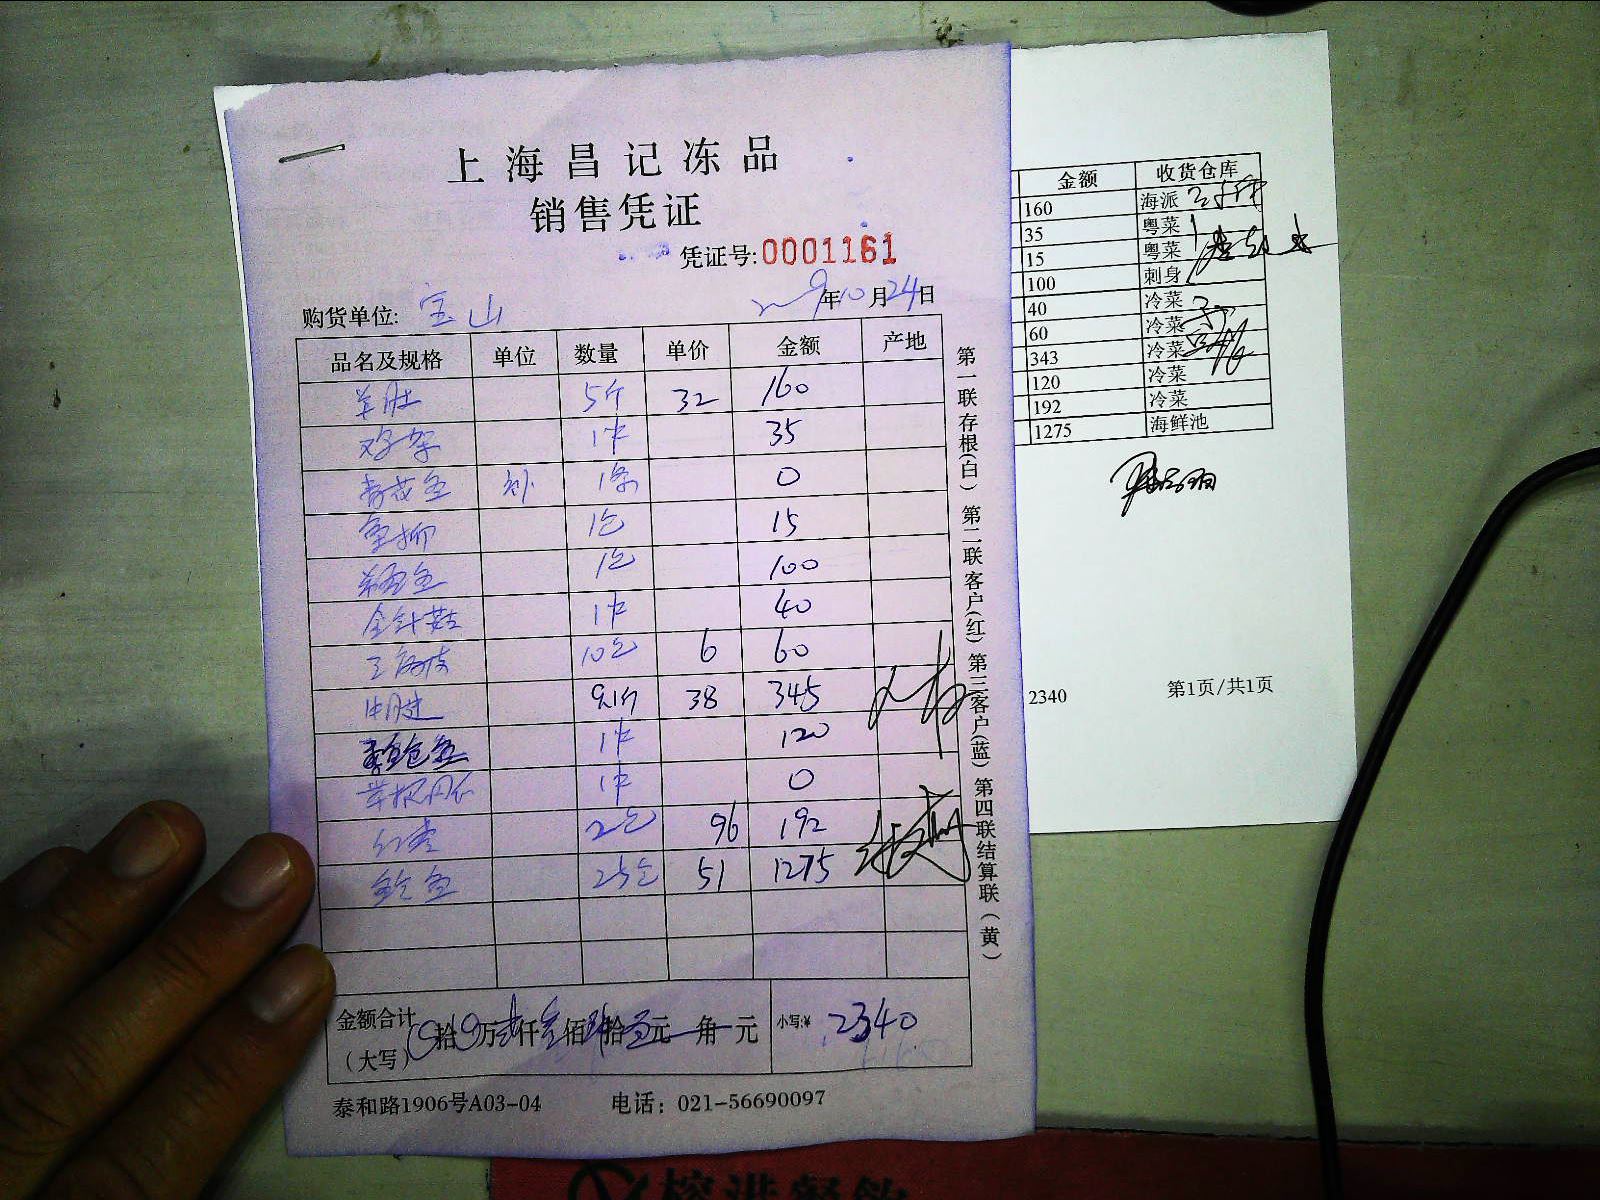 上海昌记冻品
销售凭证
凭证号:0001161
购货单位: 宝山 年10月24日
品名及规格 单位 数量 单价 金额 产地
羊肚 5斤 32 160
鸡架 1件 35
青花鱼 1条 0
鱼柳 1包 15
希鲮鱼 1包 100
金针菇 1件 40
10包 6 60
牛肚 9.1斤 38 345
鱼 1件 120
1件 0
红枣 2包 96 192
鲍鱼 25包 51 1275
金额合计
(大写) 拾 万贰仟叁佰肆拾 元 角 元 小写:¥ 2340
泰和路1906号A03-04 电话: 021-56690097
第一联存根(白) 第二联客户(红) 第三客户(蓝) 第四联结算联(黄)
金额 收货仓库
160 海派
35 粤菜
15 粤菜
100 刺身
40 冷菜
60 冷菜
343 冷菜
120 冷菜
192 冷菜
1275 海鲜池
2340 第1页/共1页